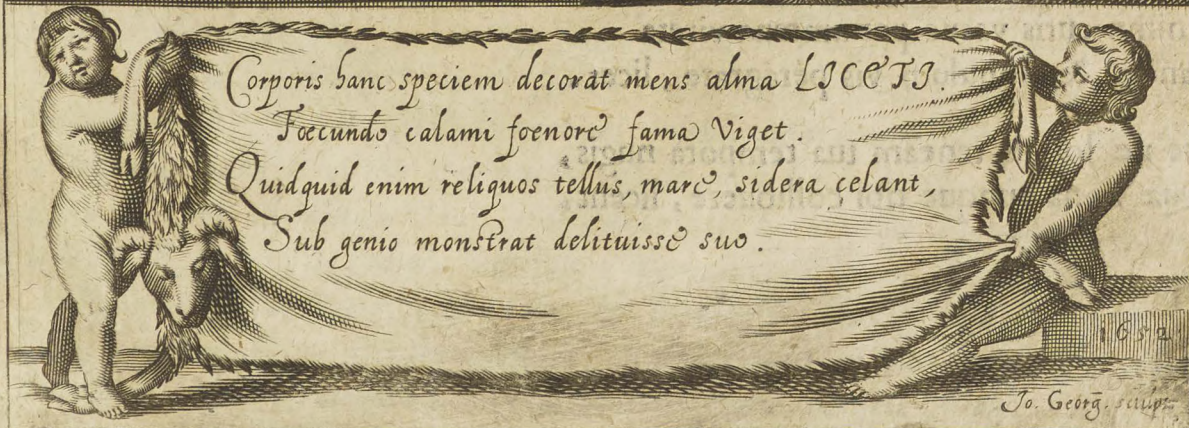 Corporis hanc speciem decorat mens alma LICETI.
Foecundo calami foenore fama Viget.
Quidquid enim reliquos tellus, mare, sidera celant,
Sub genio monstrat delituisse suo.
1652
Jo. Georg̃. sculp.